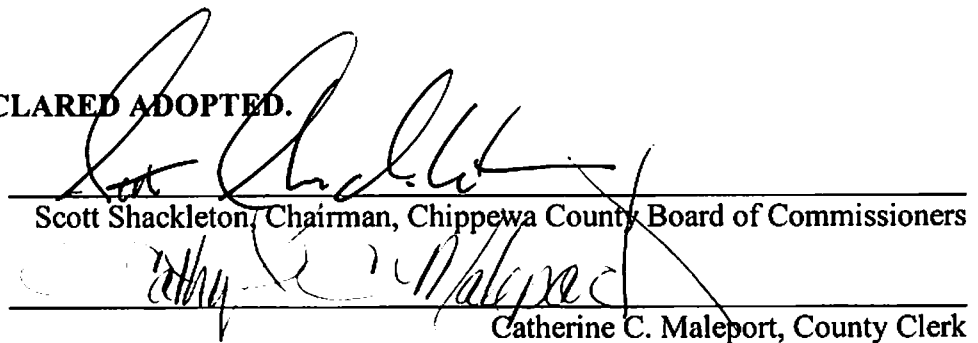 CLARED ADOPTED.
Scott Shackleton
Scott Shackleton, Chairman, Chippewa County Board of Commissioners
Cathy C Maleport
Catherine C. Maleport, County Clerk